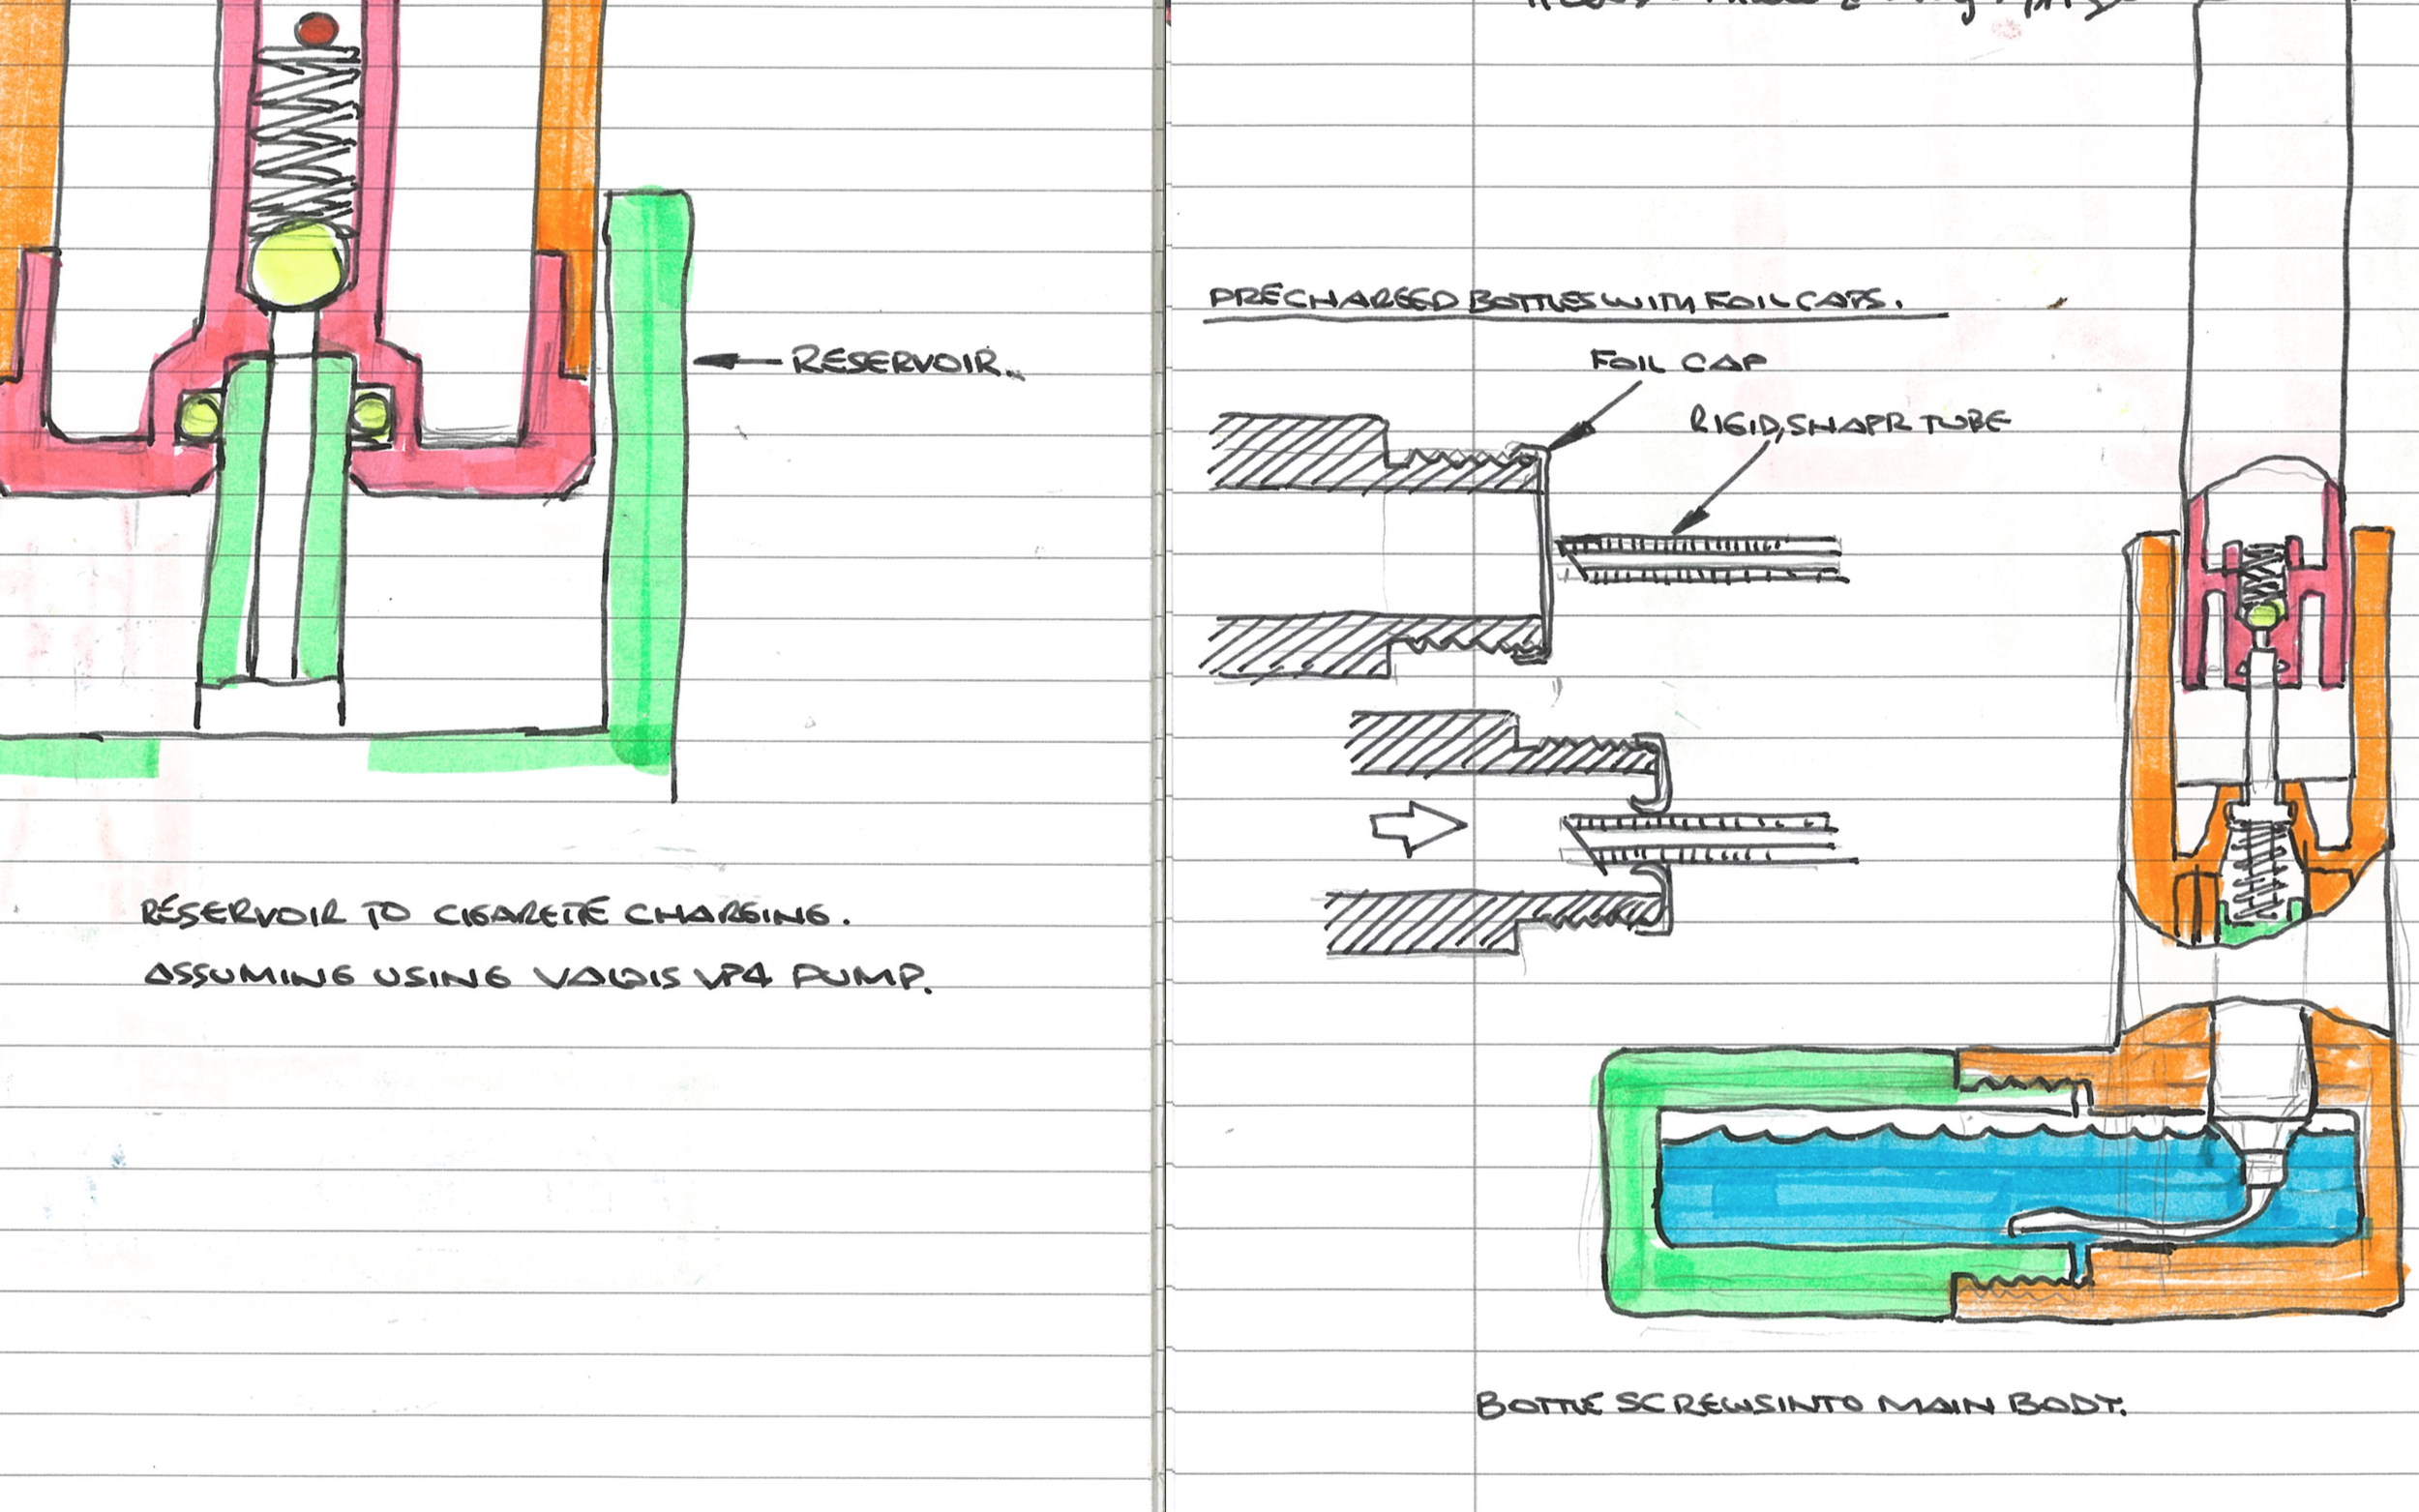 RESERVOIR.
RESERVOIR TO CIGARETTE CHARGING.
ASSUMING USING VALOIS VP4 PUMP.
PRECHARGED BOTTLES WITH FOIL CAPS.
FOIL CAP
RIGID, SHAPR TUBE
BOTTLE SCREWS INTO MAIN BODY.